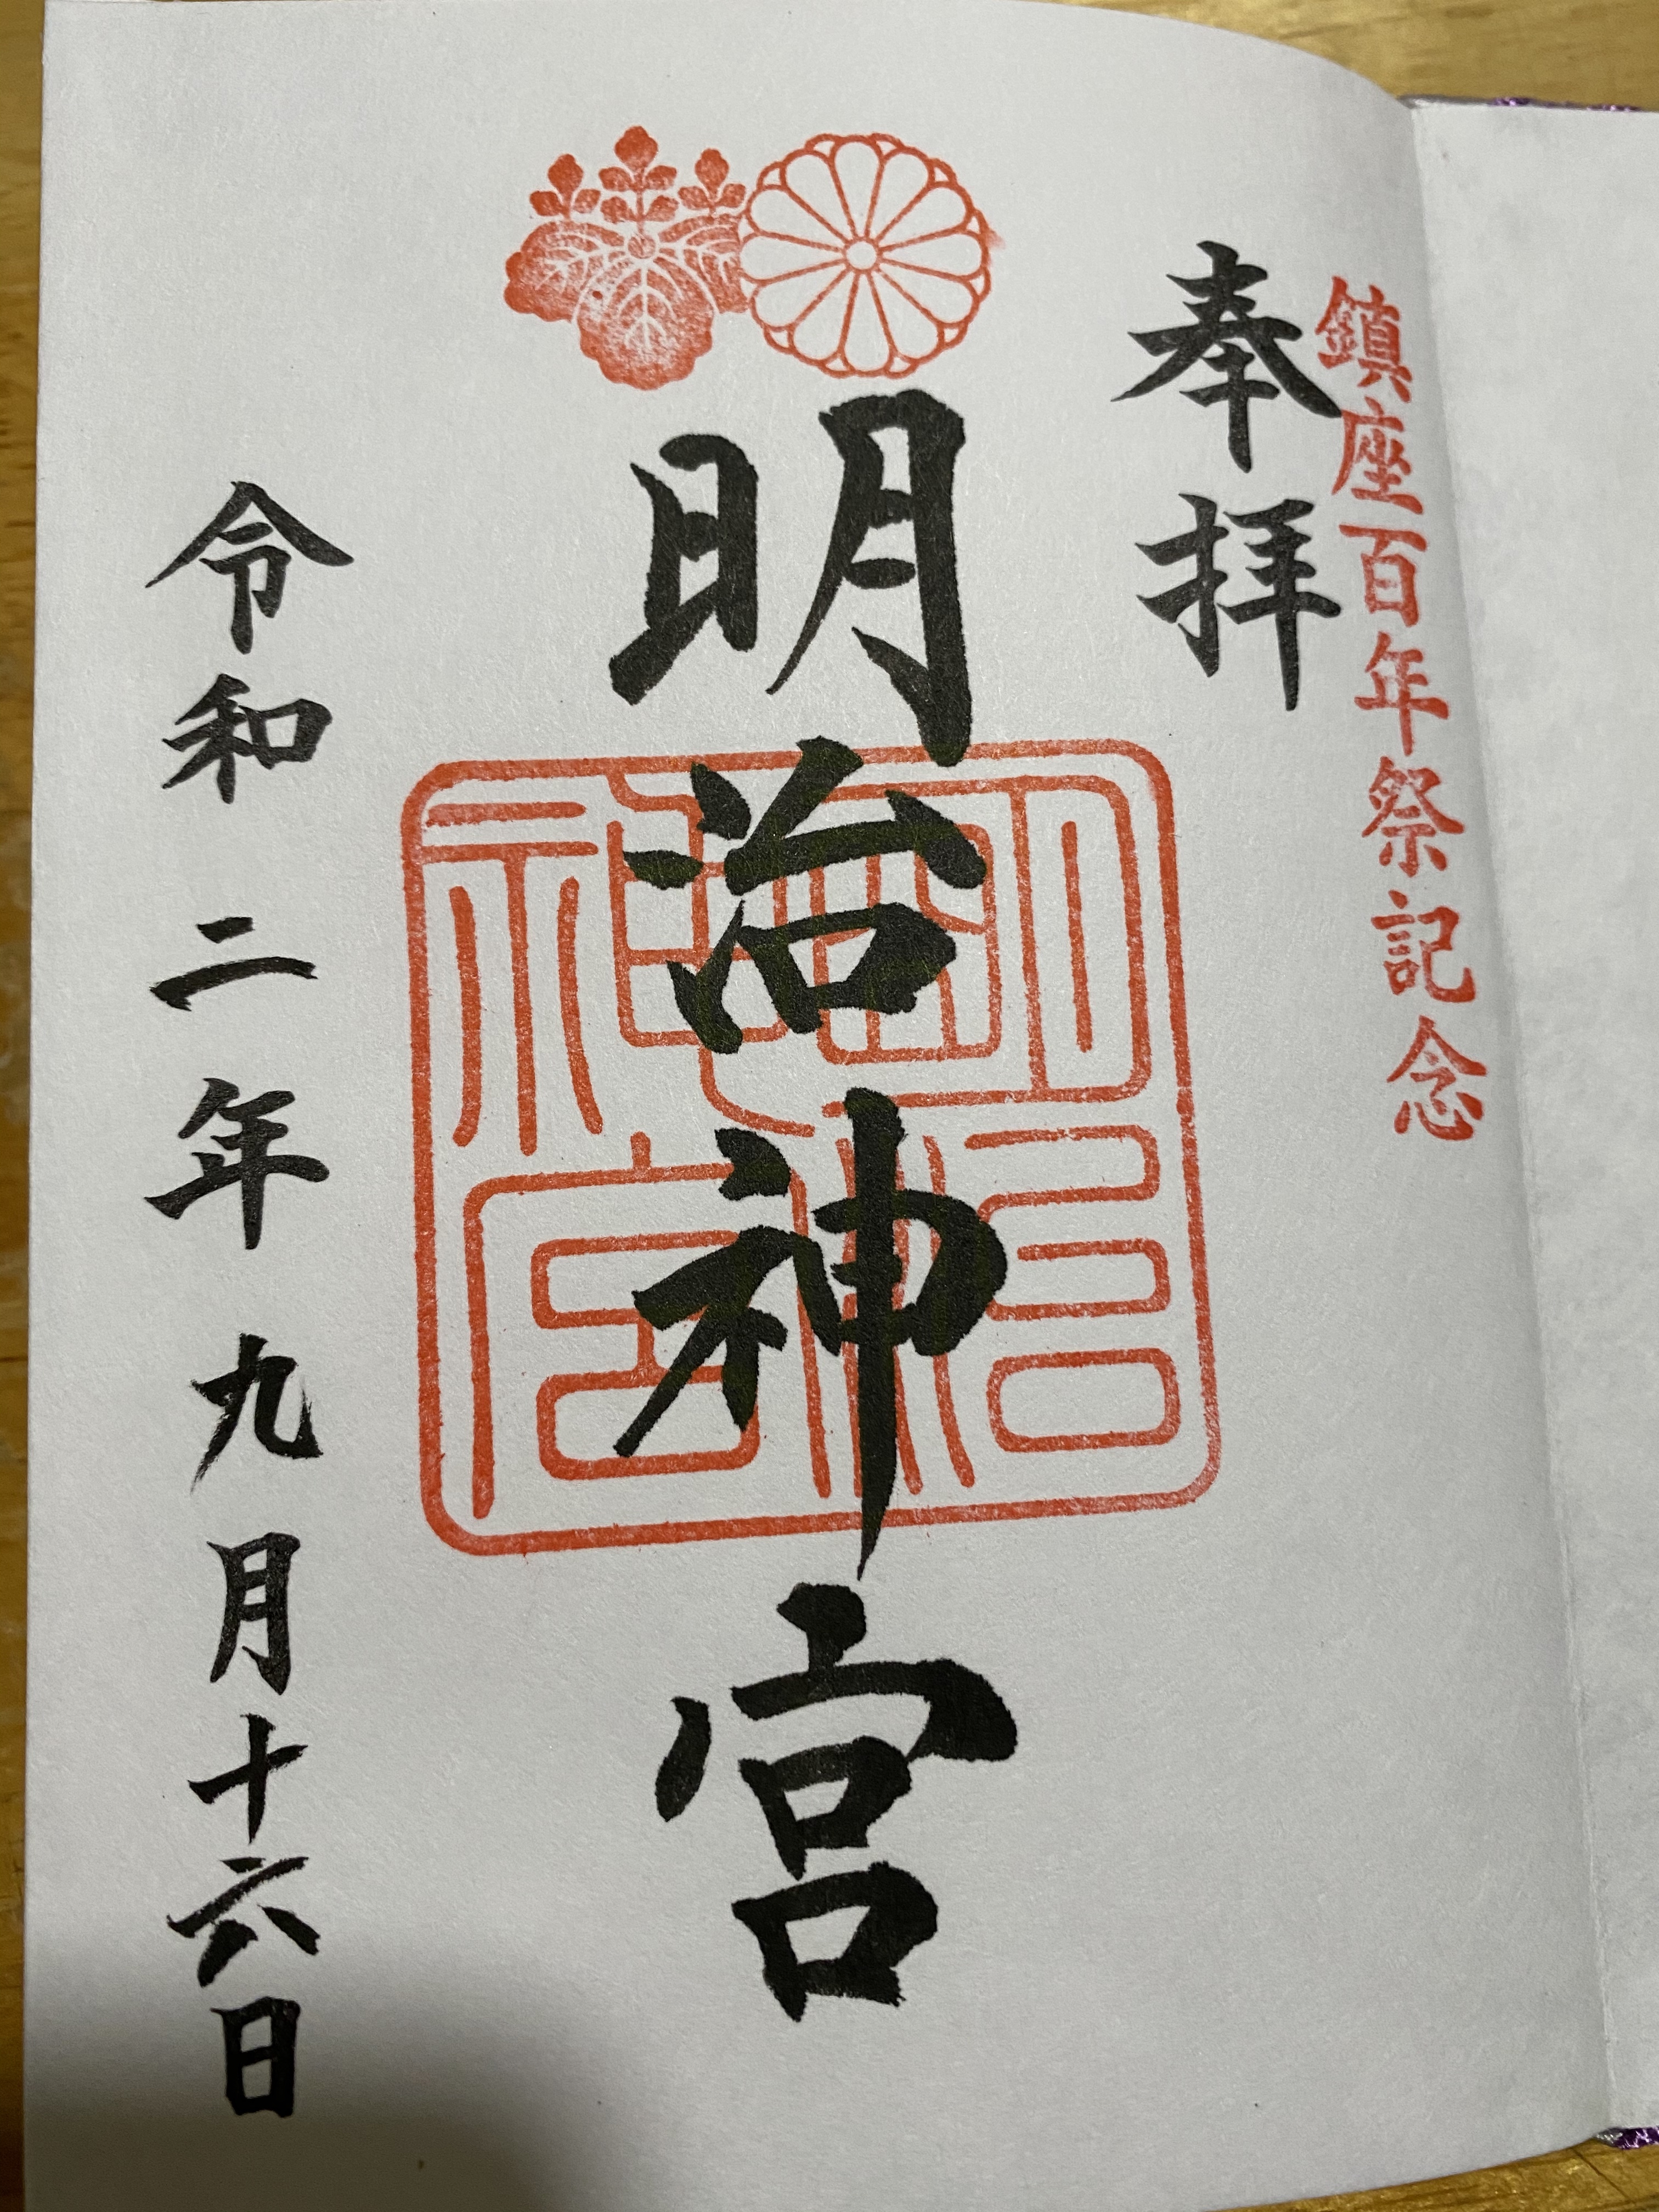 鎮座百年祭記念
奉拝
明治神宮
明治神宮
令和二年九月十六日